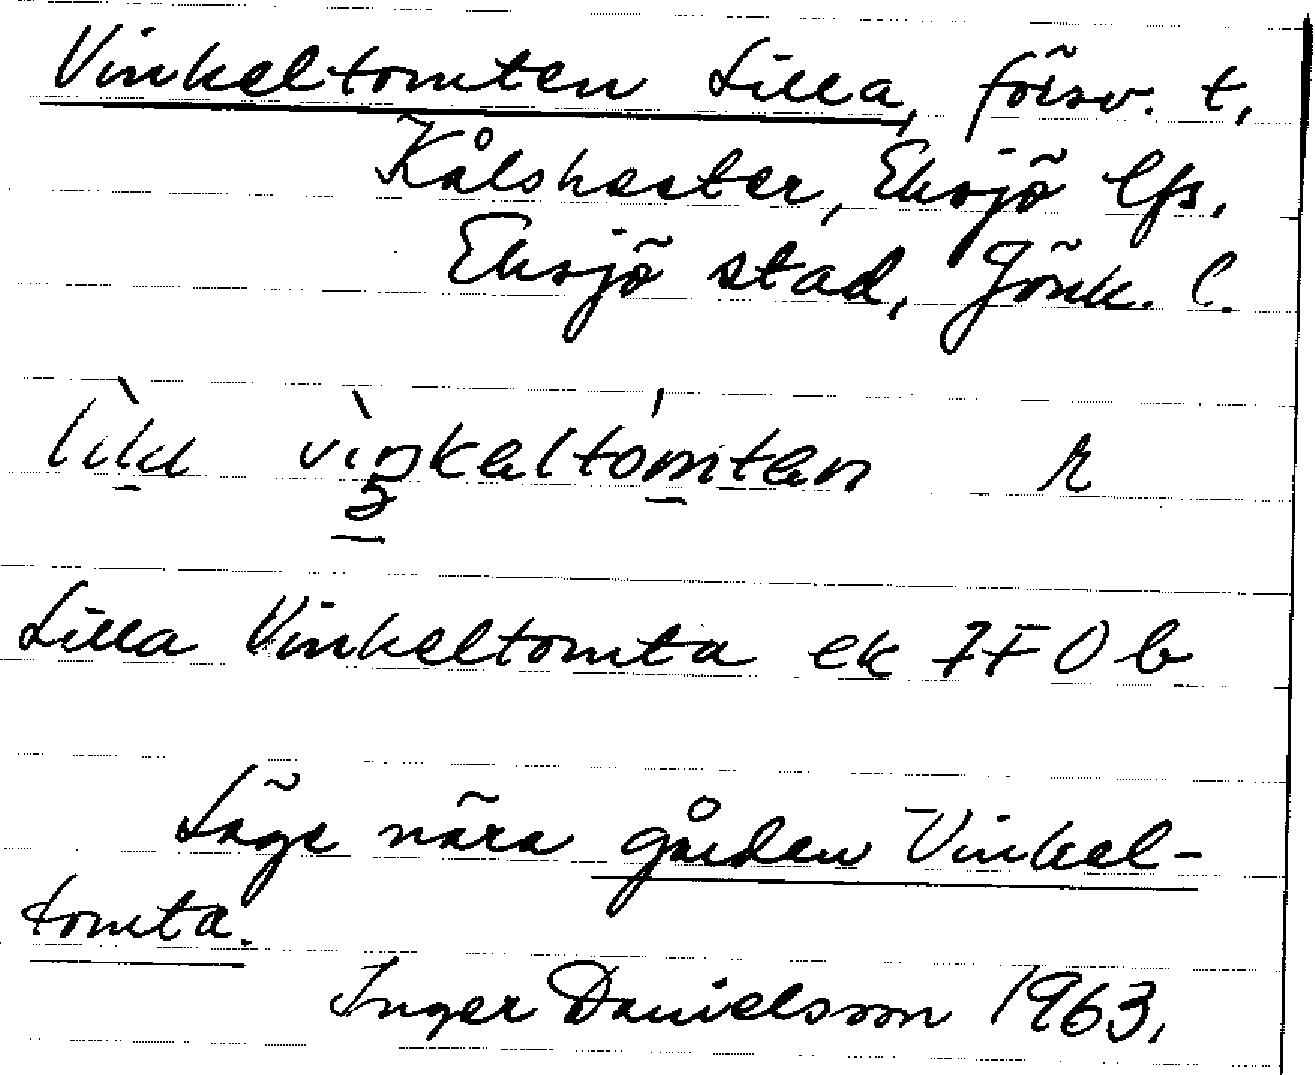 Vinkeltomten Lilla, försv. t.
Kålshester, Eksjö lfs.
Eksjö stad, Jönk. l.
vìŋkəltómtən R
Lilla Vinkeltomta ek 7F0b
Läge nära gården Vinkel-
tomta.
Inger Danielsson 1963.